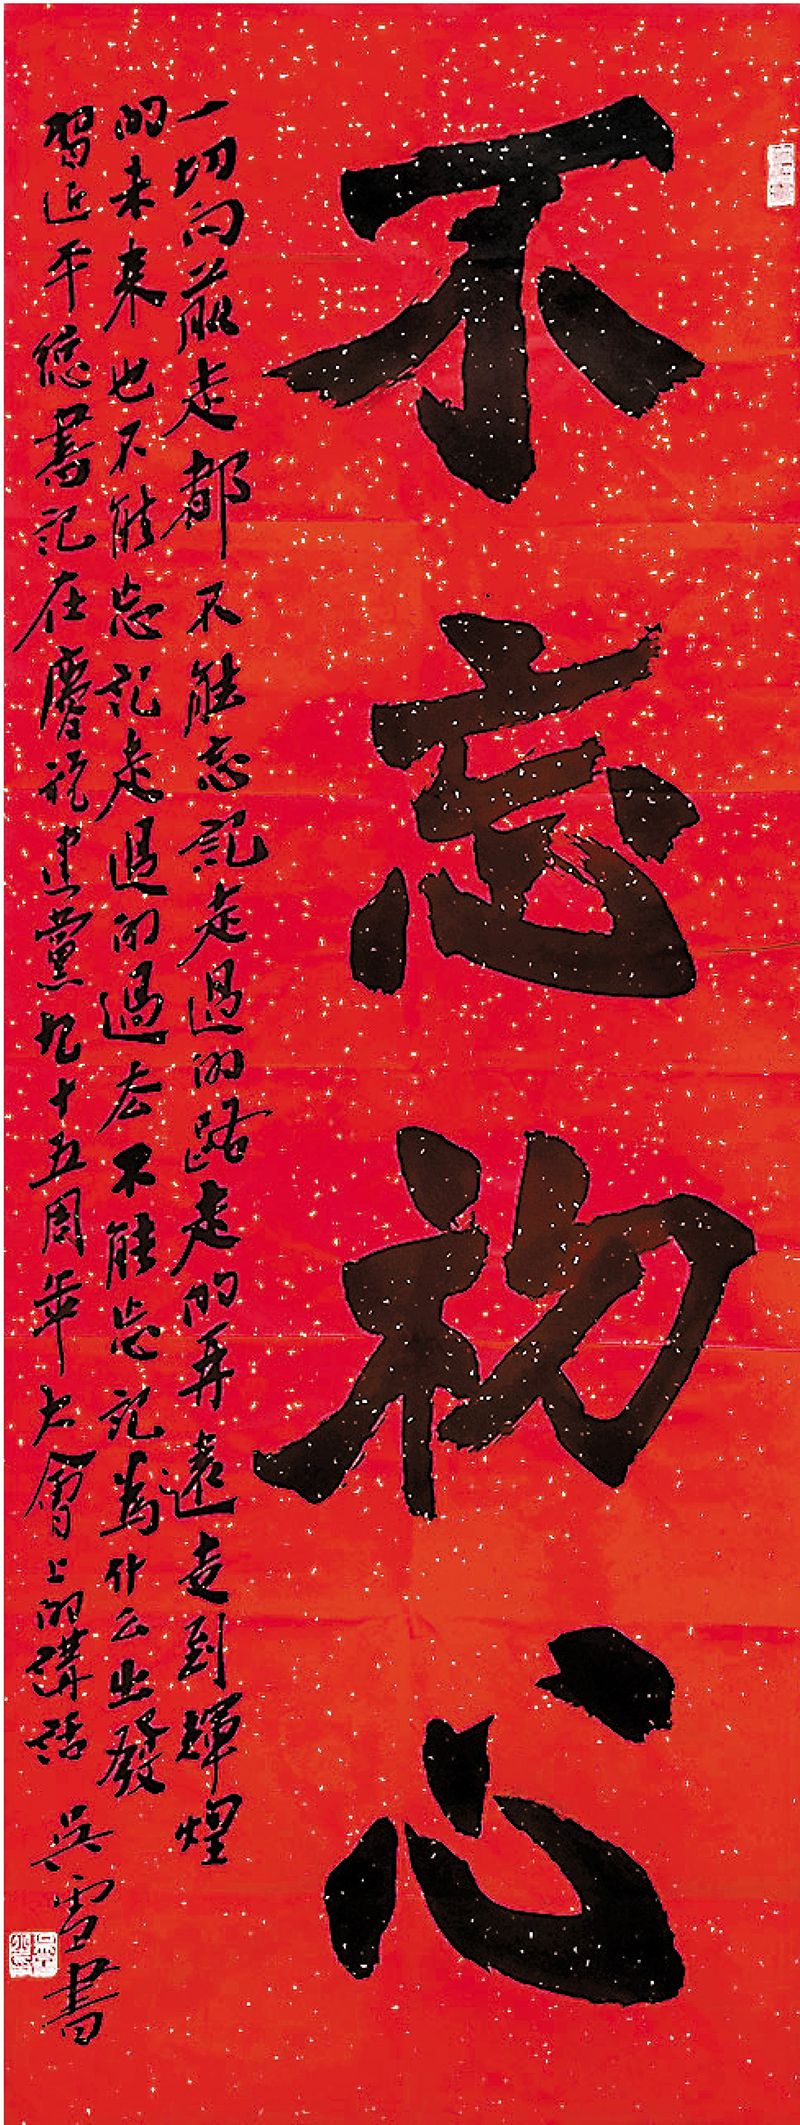 不忘初心
一切向前走都不能忘記走過的路走的再遠走到輝煌
的未来也不能忘記走過的過去不能忘記為什么出發
習近平總書記在慶祝建黨九十五周年大會上的講話
吳雪書